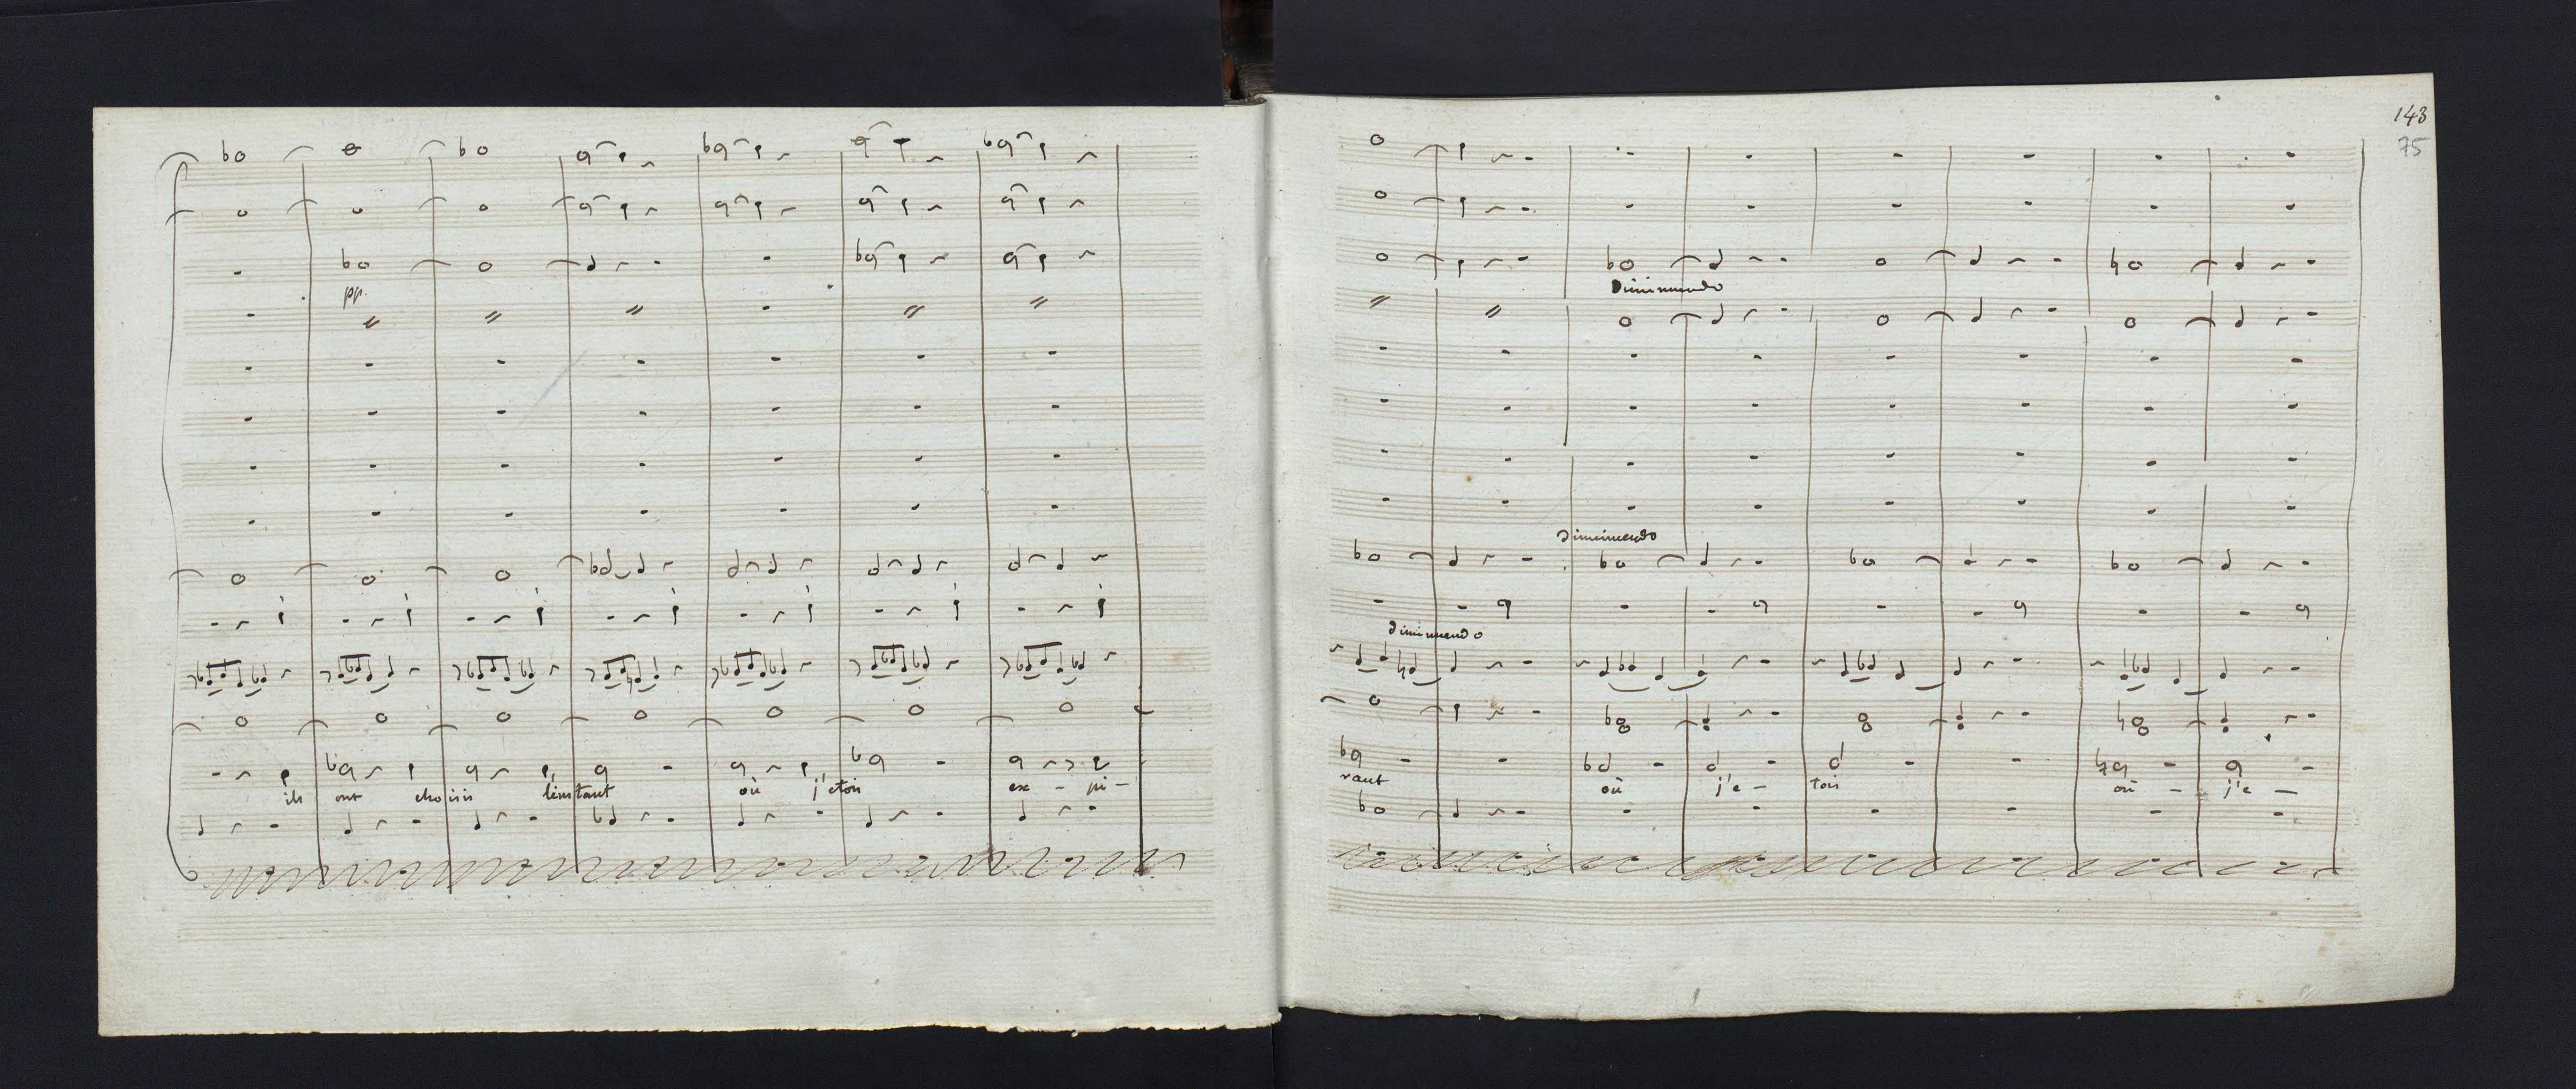 pp.
ils ont choisis l'instant où j'etois ex - pi -
143
75
Diminuendo
Diminuendo
diminuendo
rant où j'e - tois où - j'e -